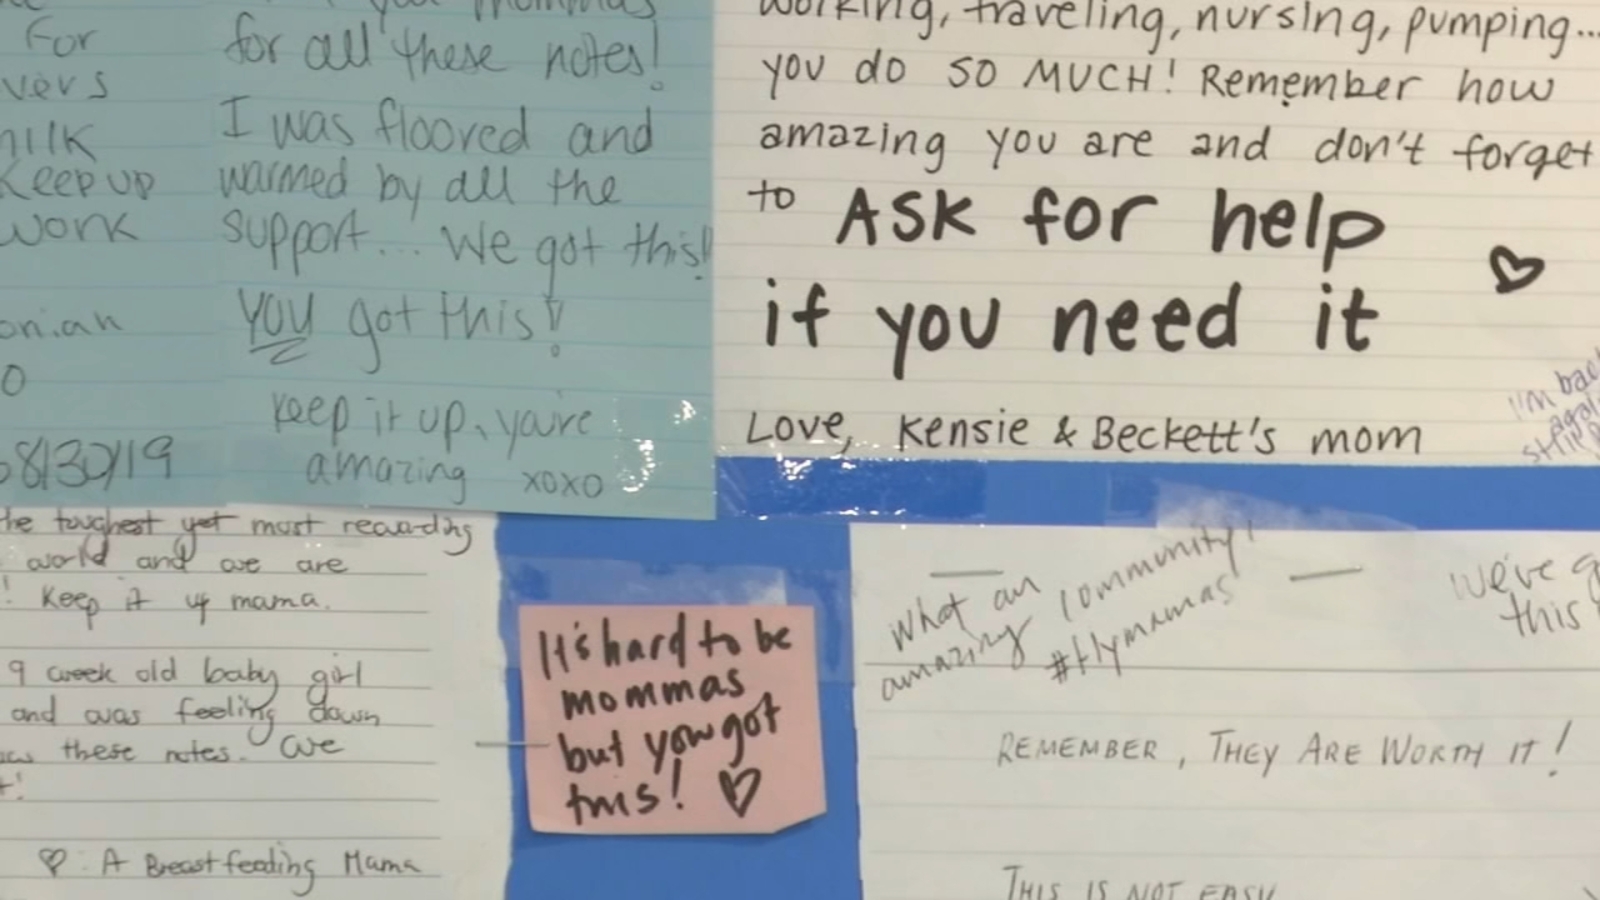 For
vers
milk
Keep up
work
onian
08/30/19
for all these notes!
I was floored and
warmed by all the
support... We got this!
YOU got this!
keep it up, you're
amazing xoxo
working, traveling, nursing, pumping...
you do SO MUCH! Remember how
amazing you are and don't forget
to ASK for help
if you need it
Love, Kensie & Beckett's mom
I'm back
again
still
the toughest yet most rewarding
world and we are
! Keep it up mama.
9 week old baby girl
and was feeling down
these notes. We
♡ A Breastfeeding Mama
It's hard to be
mommas
but you got
this! ♡
What an
amazing community!
#flymamas
We've g
this
REMEMBER, THEY ARE WORTH IT!
THIS IS NOT EASY